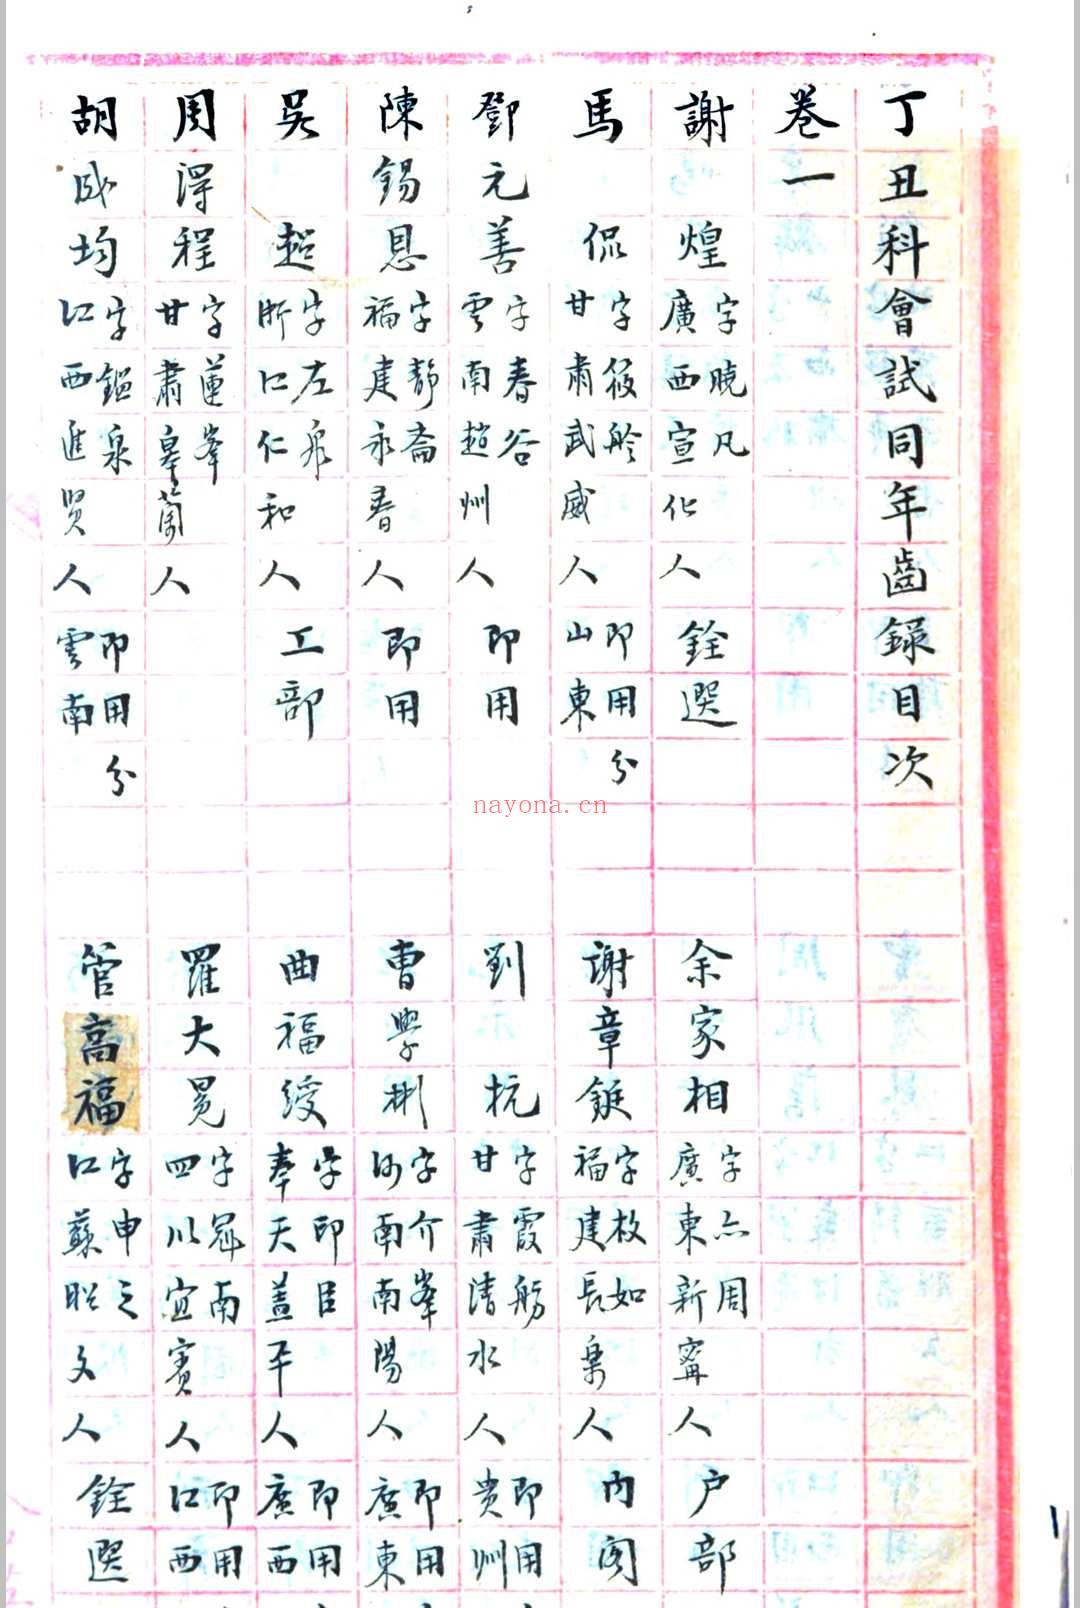 丁丑科會試同年齒錄目次
卷一
謝煌 字曉凡 廣西宣化人 銓選
余家相 字亦周 廣東新甯人 户部
馬侃 字筱舲 甘肅武威人 即用 山東分
謝章鋌 字枚如 福建長樂人 內閣
鄧元善 字春谷 雲南趙州人 即用
劉杭 字霞舫 甘肅清水人 即用 貴州
陳錫恩 字靜齋 福建永春人 即用
曹學彬 字介峯 河南南陽人 即用 廣東
吳超 字左泉 浙江仁和人 工部
曲福綬 字印臣 奉天蓋平人 即用 廣西
周得程 字蓮峯 甘肅皋蘭人
羅大冕 字冠南 四川宜賓人 即用 江西
胡成均 字鑑泉 江西進賢人 即用 雲南分
管高福 字申之 江蘇人 銓選
nayona.cn